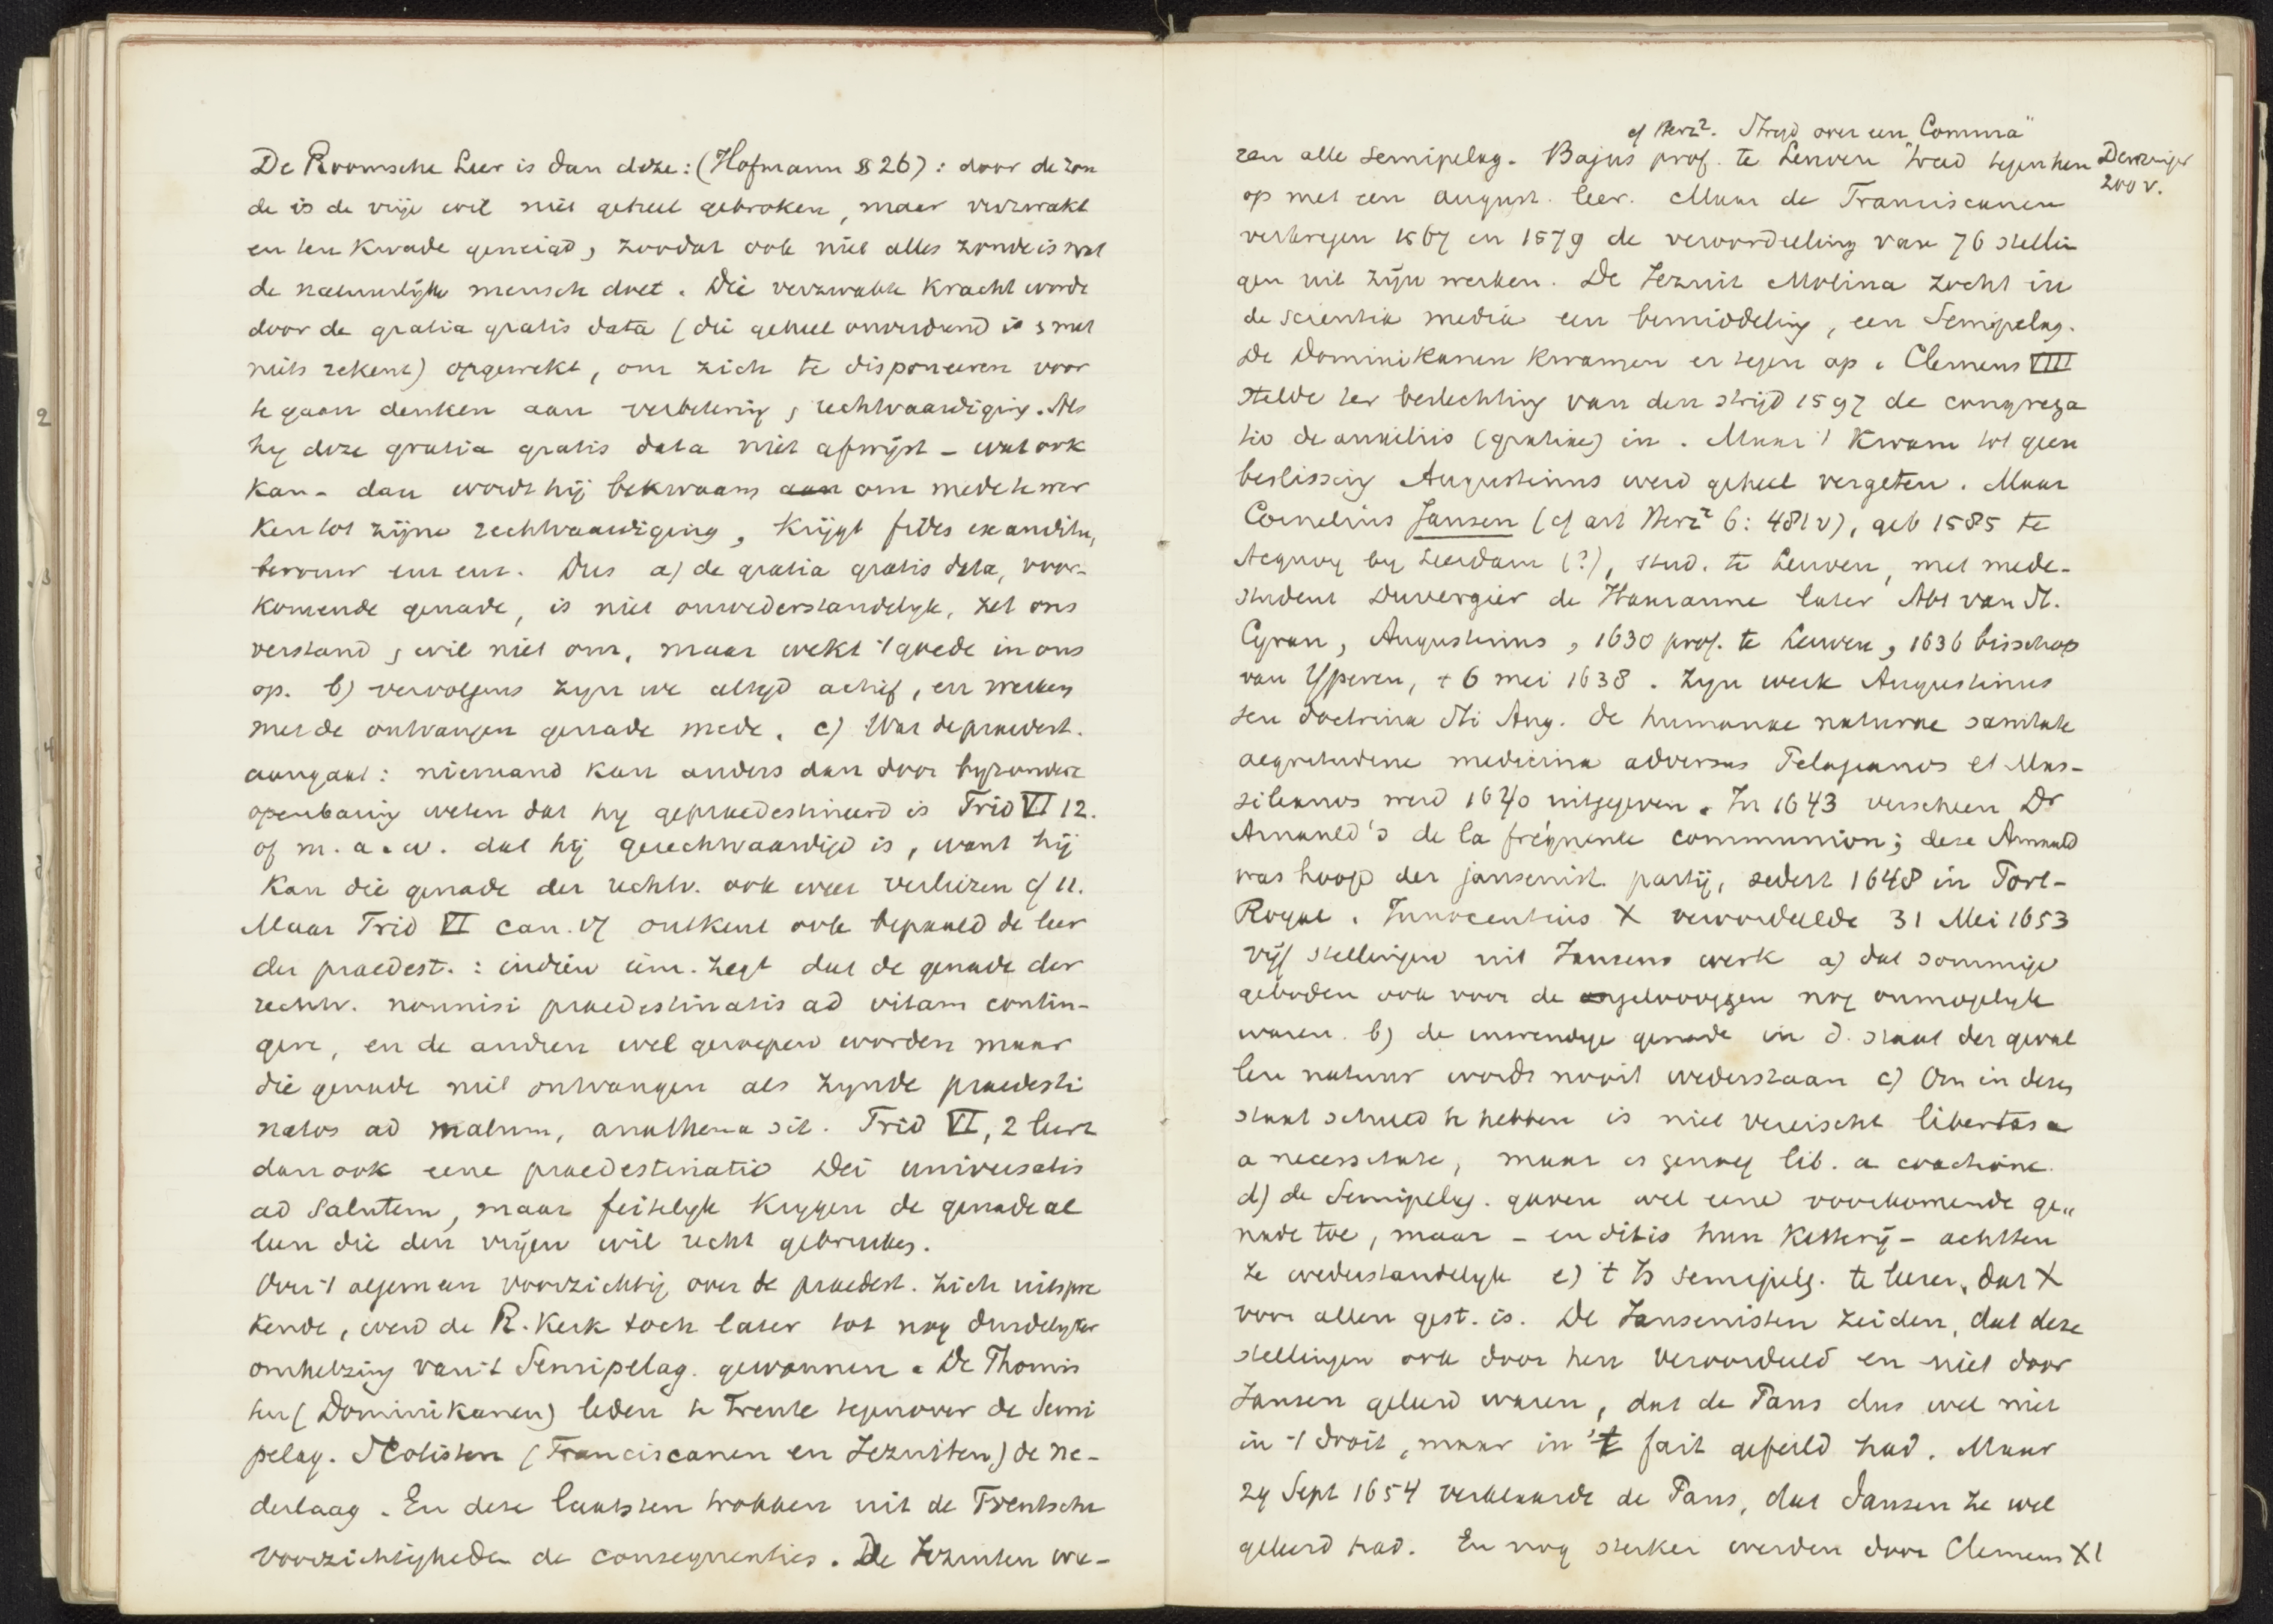 De Roomsche Leer is dan deze: (Hofmann § 26): door de zon
de is de vrije wil niet geheel gebroken, maar verzwakt
en ten kwade geneigd, zoodat ook niet alles zonde is wat
de natuurlijke mensch doet. Die verzwakte kracht wordt
door de gratia gratis data (die geheel onverdiend is & met
niets rekent) opgewekt, om zich te disponeeren voor
te gaan denken aan verbetering & rechtvaardiging. Als
hy deze gratia gratis data niet afwijst - wat ook
kan - dan wordt hij bekwaam om mede te wer
ken tot zijne rechtvaardiging, krijgt fides ex auditu,
berouw enz enz. Dus a) de gratia gratis data, voor-
komende genade, is niet onwederstandelyk, zet ons
verstand & wil niet om, maar wekt 't goede in ons
op. b) vervolgens zyn we altyd actief, en werken
met de ontvangen genade mede. c) Wat de praedest.
aangaat: niemand kan anders dan door byzondere
openbaring weten dat hy gepraedestineerd is Trid VI 12.
of m. a. w. dat hij gerechtvaardigd is, want hij
kan die genade der rechtv. ook weer verliezen cf 11.
Maar Trid VI can. 17 ontkent ook bepaald de leer
der praedest.: indien iem. zegt dat de genade der
rechtv. nonnisi praedestinatis ad vitam contin-
gere, en de andren wel geroepen worden maar
die genade niet ontvangen als zynde praedesti
natos ad malum, anathema sit. Trid VI, 2 leert
dan ook eene praedestinatio Dei universalis
ad salutem, maar feitelyk krygen de genade al
leen die den vrijen wil recht gebruiken.
Over 't algemeen voorzichtig over de praedest. zich uitspre
kende, werd de R. Kerk toch later tot nog duidelyker
omhelzing van 't Semipelag. gewonnen. De Thomis
ten (Dominikanen) leden te Trente tegenover de Semi
pelag. Scotisten (Franciscanen en Jezuiten) de ne-
derlaag. En deze laatsten trokken uit de Trentsche
voorzichtigheden de consequenties. De Jezuiten wa-
cf Herz². Strijd over een "Comma"
ren alle semipelag. Bajus prof. te Leuven trad tegen hen
Denzinger
200 v.
op met een august. leer. Maar de Franciscanen
verkregen 1567 en 1579 de veroordeeling van 76 stellin
gen uit zijn werken. De Jezuit Molina zocht in
de scientia media een bemiddeling, een Semipelag.
De Dominikanen kwamen er tegen op. Clemens VIII
stelde ter beslechting van den strijd 1597 de congrega
tio de auxiliis (gratiae) in. Maar 't kwam tot geen
beslissing Augustinus werd geheel vergeten. Maar
Cornelius Jansen (cf art Herz² 6: 481 v), geb 1585 te
Acquoy by Leerdam (?), stud. te Leuven, met mede-
student Duvergier de Hauranne later Abt van St.
Cyran, Augustinus, 1630 prof. te Leuven, 1636 bisschop
van Yperen, † 6 mei 1638. Zyn werk Augustinus
seu doctrina Sti Aug. de humanae naturae sanitate
aegritudine medicina adversus Pelagianos et Mas-
silianos werd 1640 uitgegeven. In 1643 verscheen Dr
Arnauld's de la fréquente communion; deze Arnauld
was hoofd der jansenist. partij, sedert 1648 in Port-
Royal. Innocentius X veroordeelde 31 Mei 1653
vijf stellingen uit Jansens werk a) dat sommige
geboden ook voor de geloovigen nog onmogelyk
waren. b) de inwendige genade in d. staat der geval
len natuur wordt nooit wederstaan c) Om in dezen
staat schuld te hebben is niet vereischt libertas a
a necessitate, maar is genoeg lib. a coactione.
d) de Semipelag. gaven wel eene voorkomende ge„
nade toe, maar - en dit is hun ketterij - achtten
ze wederstandelyk e) 't Is semipelg. te leeren, dat X
voor allen gest. is. De Jansenisten zeiden, dat deze
stellingen ook door hen veroordeeld en niet door
Jansen geleerd waren, dat de Paus dus wel niet
in 't droit, maar in 't fait gefeild had. Maar
29 Sept 1654 verklaarde de Paus, dat Jansen ze wel
geleerd had. En nog sterker werden door Clemens XI